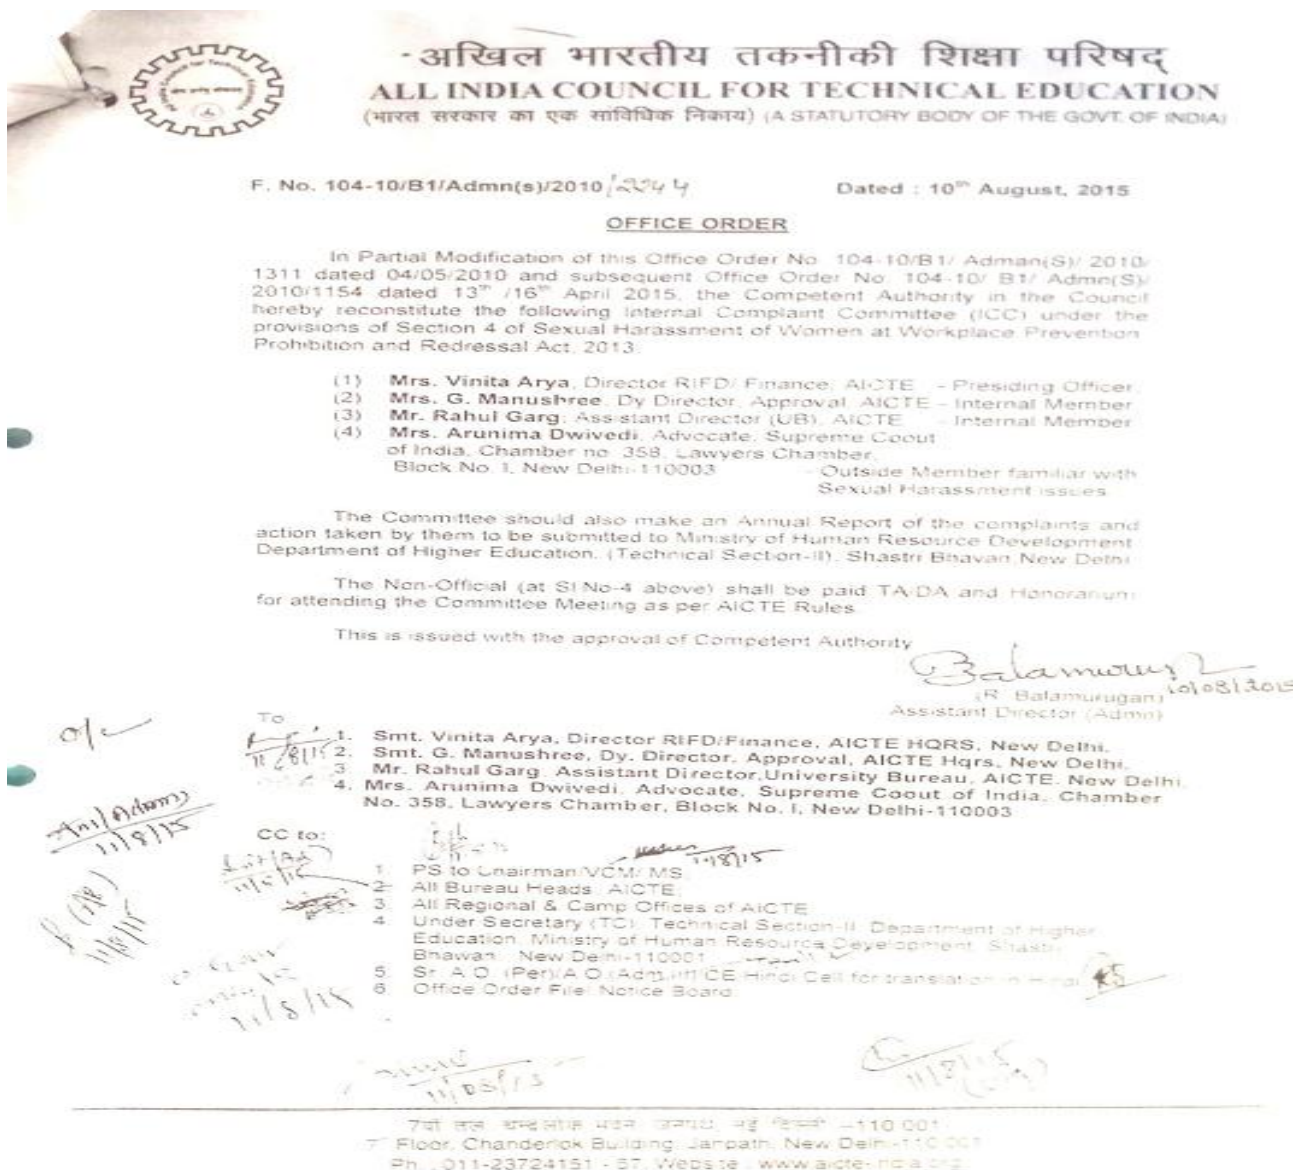 अखिल भारतीय तकनीकी शिक्षा परिषद्
ALL INDIA COUNCIL FOR TECHNICAL EDUCATION
(भारत सरकार का एक सांविधिक निकाय) (A STATUTORY BODY OF THE GOVT. OF INDIA)
F. No. 104-10/B1/Admn(s)/2010/2244 Dated : 10th August, 2015
OFFICE ORDER
In Partial Modification of this Office Order No. 104-10/B1/ Adman(S)/ 2010/
1311 dated 04/05/2010 and subsequent Office Order No. 104-10/ B1/ Admn(S)/
2010/1154 dated 13th /16th April 2015, the Competent Authority in the Council
hereby reconstitute the following Internal Complaint Committee (ICC) under the
provisions of Section 4 of Sexual Harassment of Women at Workplace Prevention
Prohibition and Redressal Act, 2013.
(1) Mrs. Vinita Arya, Director RIFD/ Finance, AICTE - Presiding Officer
(2) Mrs. G. Manushree, Dy Director, Approval, AICTE - Internal Member
(3) Mr. Rahul Garg, Assistant Director (UB), AICTE - Internal Member
(4) Mrs. Arunima Dwivedi, Advocate, Supreme Coout
of India, Chamber no. 358, Lawyers Chamber,
Block No. I, New Delhi-110003 - Outside Member familiar with
Sexual Harassment issues
The Committee should also make an Annual Report of the complaints and
action taken by them to be submitted to Ministry of Human Resource Development
Department of Higher Education, (Technical Section-II), Shastri Bhavan New Delhi
The Non-Official (at Sl No-4 above) shall be paid TA/DA and Honorarium
for attending the Committee Meeting as per AICTE Rules.
This is issued with the approval of Competent Authority
Balamurug
10/08/2015
(R. Balamurugan)
Assistant Director (Admn)
O/c
To
1. Smt. Vinita Arya, Director RIFD/Finance, AICTE HQRS, New Delhi.
2. Smt. G. Manushree, Dy. Director, Approval, AICTE Hqrs, New Delhi.
3. Mr. Rahul Garg, Assistant Director,University Bureau, AICTE. New Delhi.
4. Mrs. Arunima Dwivedi, Advocate, Supreme Coout of India, Chamber
No. 358, Lawyers Chamber, Block No. I, New Delhi-110003
11/8/15
11/8/15
CC to:
11/8/15
1. PS to Chairman/VCM/ MS
2. All Bureau Heads, AICTE
3. All Regional & Camp Offices of AICTE
4. Under Secretary (TC), Technical Section-II, Department of Higher
Education, Ministry of Human Resource Development, Shastri
Bhawan, New Delhi-110001
5. Sr. A.O. (Per)/A.O.(Adm Hindi Cell for translation in Hindi
6. Office Order File/ Notice Board
11/8/15
11/8/15
11/8/15
7वां तल, चन्द्रलोक भवन, जनपथ, नई दिल्ली -110 001
7th Floor, Chanderlok Building, Janpath, New Delhi-110 001
Ph.: 011-23724151 - 57, Website : www.aicte-india.org